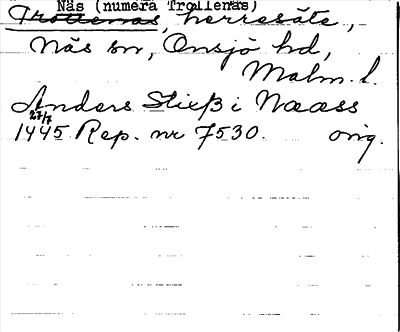 Näs (numera Trollenäs)
Trollenäs, herresäte,
Näs sn, Onsjö hd,
Malm. l.
Anders Stieß i Næess
27/7
1445 Rep. nr 7530. orig.